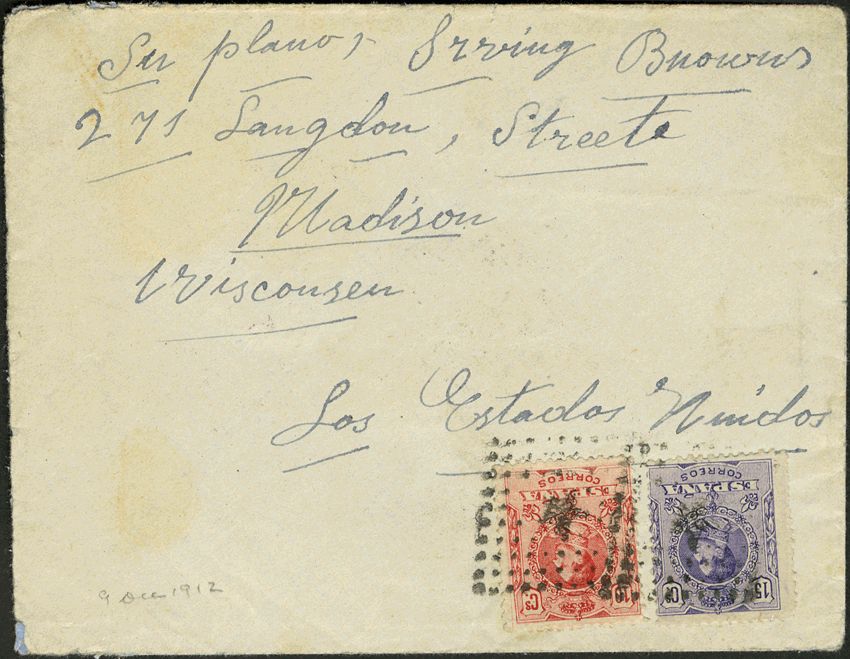 Su plano, Srving Bnowns
271 Langdon, Streete
Madison
Wisconsen
Los Estados Unidos
CORREOS
ESPAÑA
10 Cs
CORREOS
ESPAÑA
15 Cs
9 Dec 1912